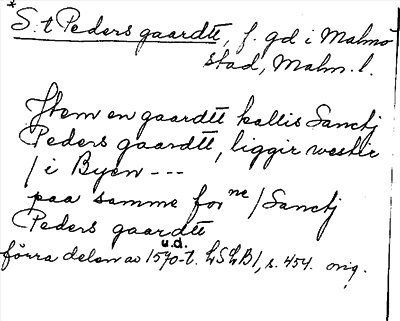 *
S:t Peders gaardtt, f. gd i Malmö
stad, Malm. l.
Jtem en gaardtt kallis Sanctj
Peders gaardtt, liggir westir
/ i Byen ---
paa samme for ne / Sanctj
Peders gaardtt
u.d.
förra delen av 1570-t. LSLB1, s. 454. orig.